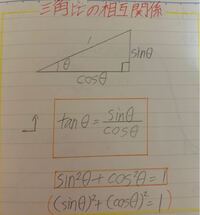 三角比の相互関係
1
θ
sinθ
cosθ
tanθ = sinθ/cosθ
sin²θ + cos²θ = 1
((sinθ)² + (cosθ)² = 1)